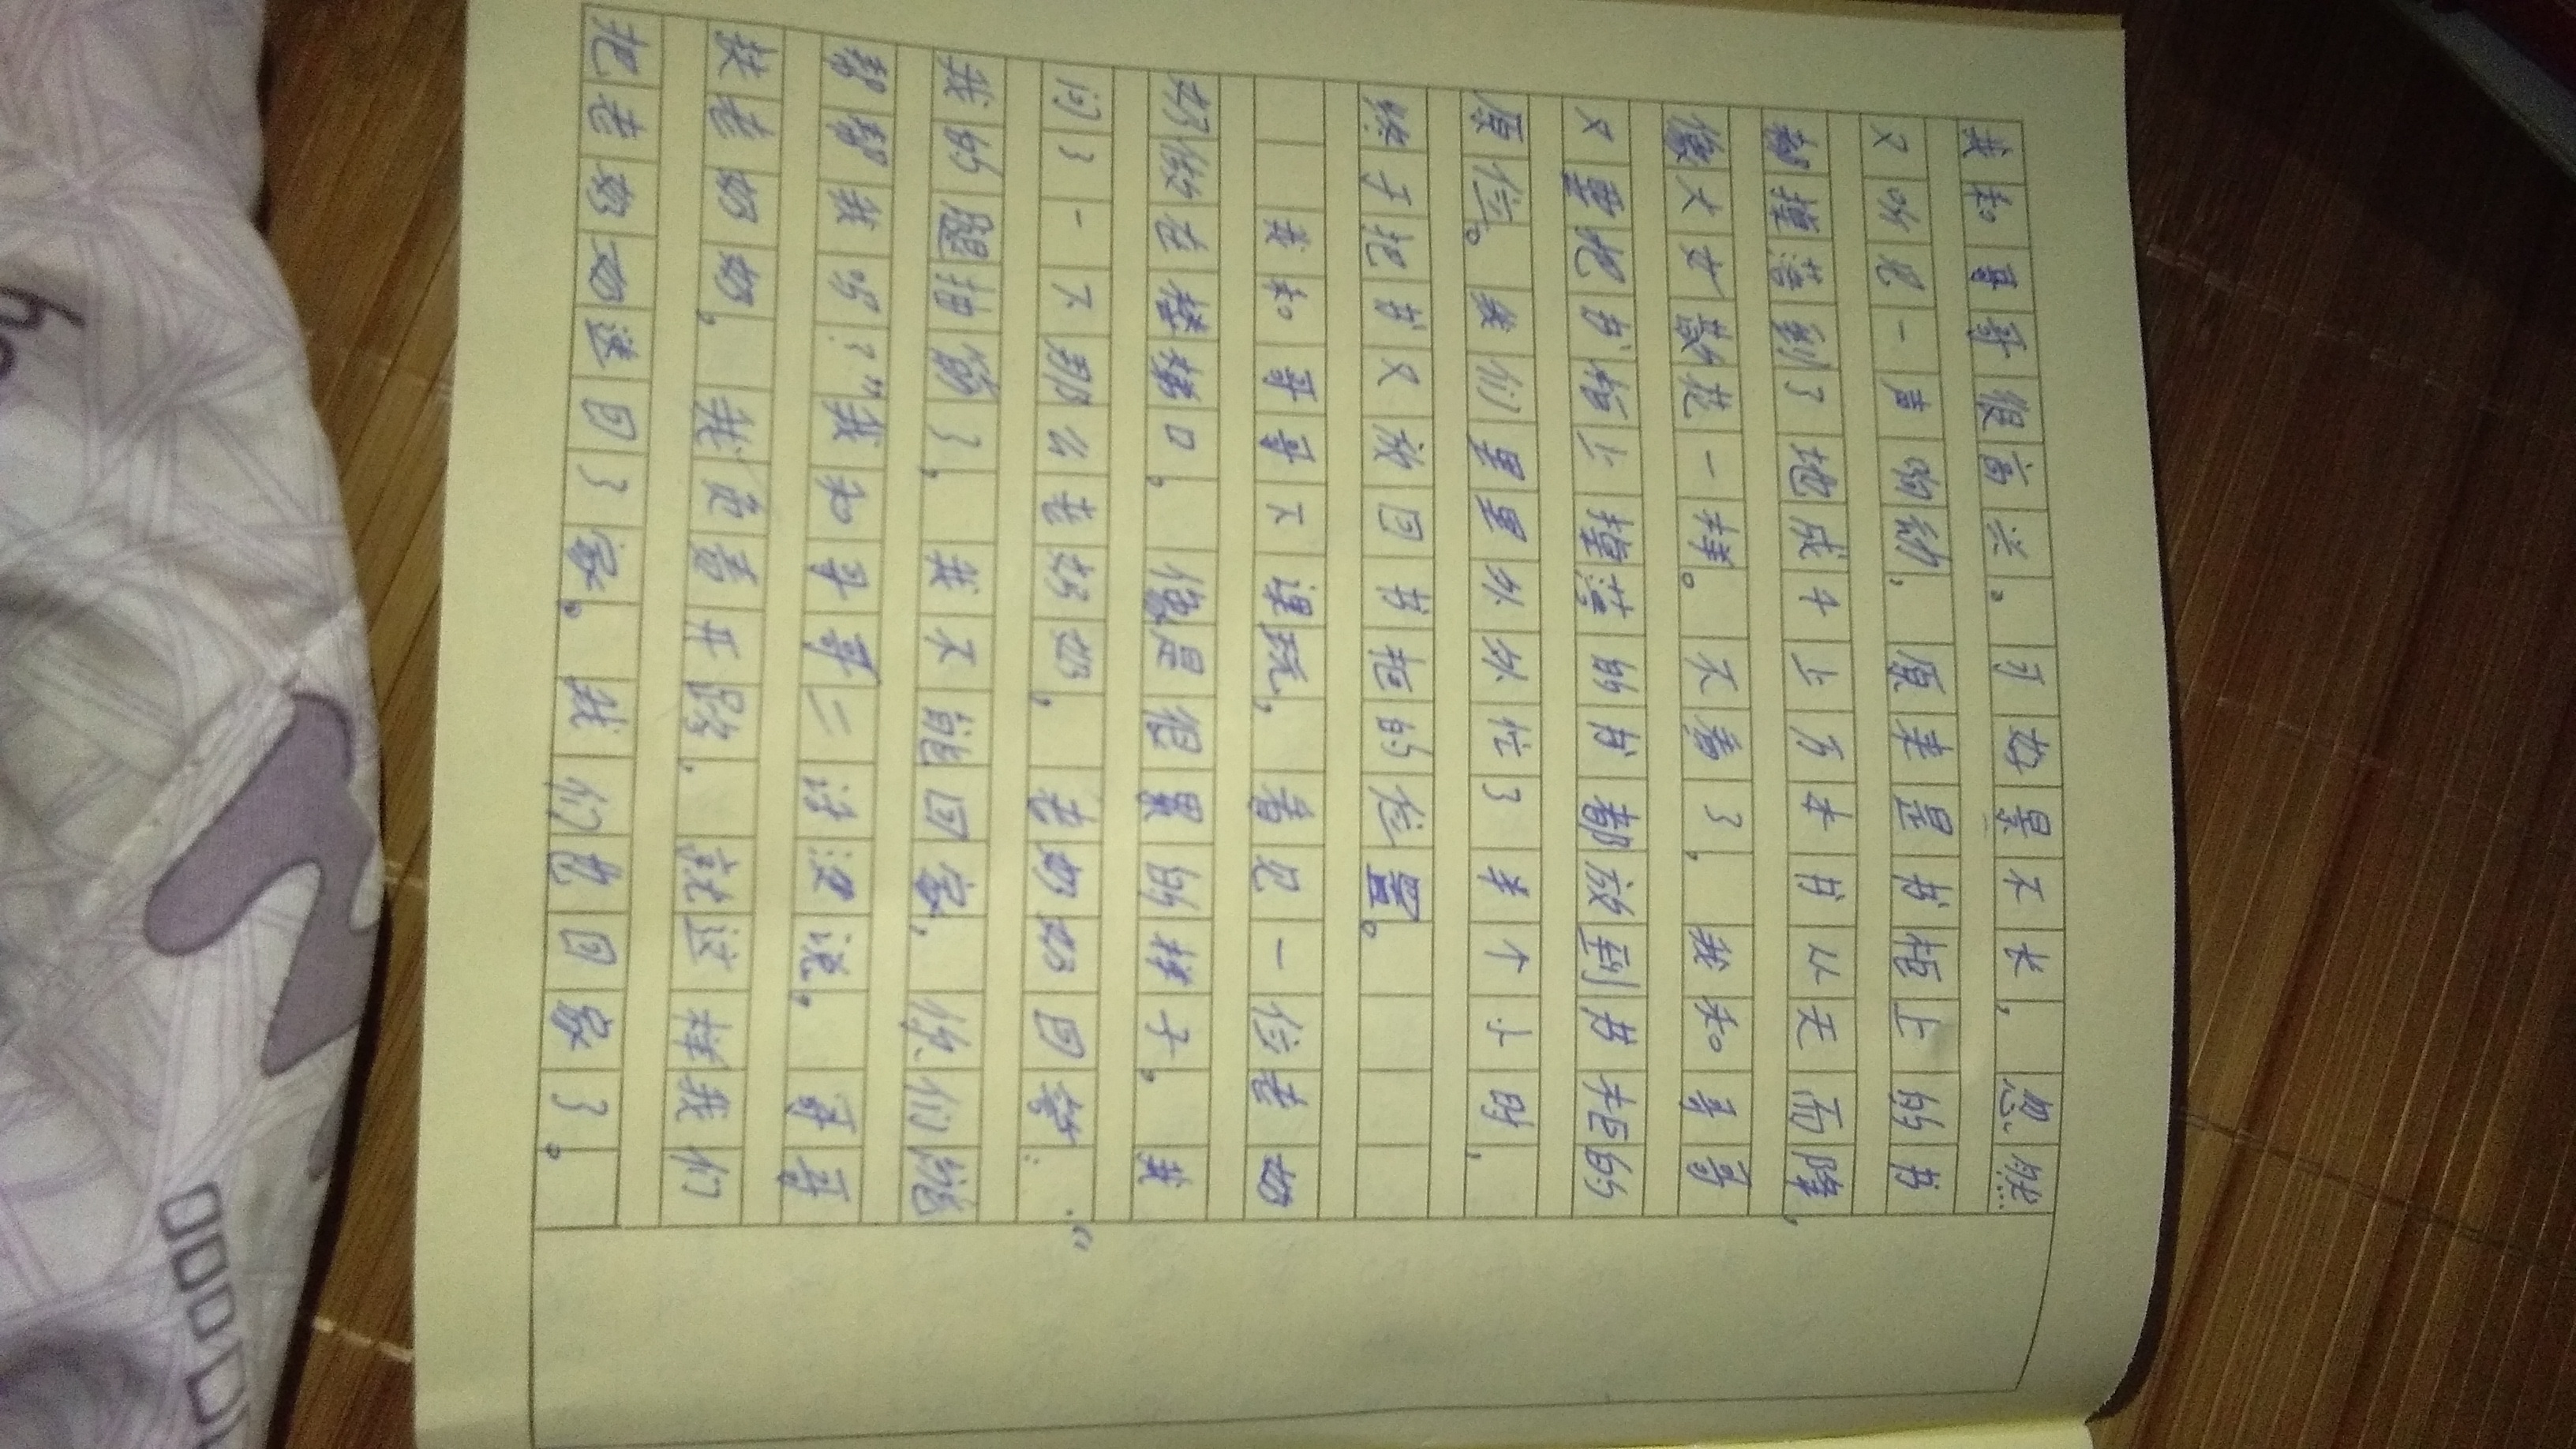 我和哥哥很高兴。可好景不长，忽然
又听见一声响幼，原来是书柜上的书
都撞落到了地成千上万本书从天而降，
像大女散花一样。不善了，我和哥哥
又要把书柜上撞落的书都放到书柜的
原位。我们里里外外忙了半个小时，
终于把书又放回书柜的位置。
我和哥哥下课玩，看见一位老奶
奶做在楼梯口，像是很累的样子。我
问了一下那么老奶奶，老奶奶回答：“
我的腿扭筋了，我不能回家，你们能
帮帮我吗？”我和哥哥二话没说，哥哥
扶老奶奶，我负责开路，就这样我们
把老奶奶送回了家。我们也回家了。